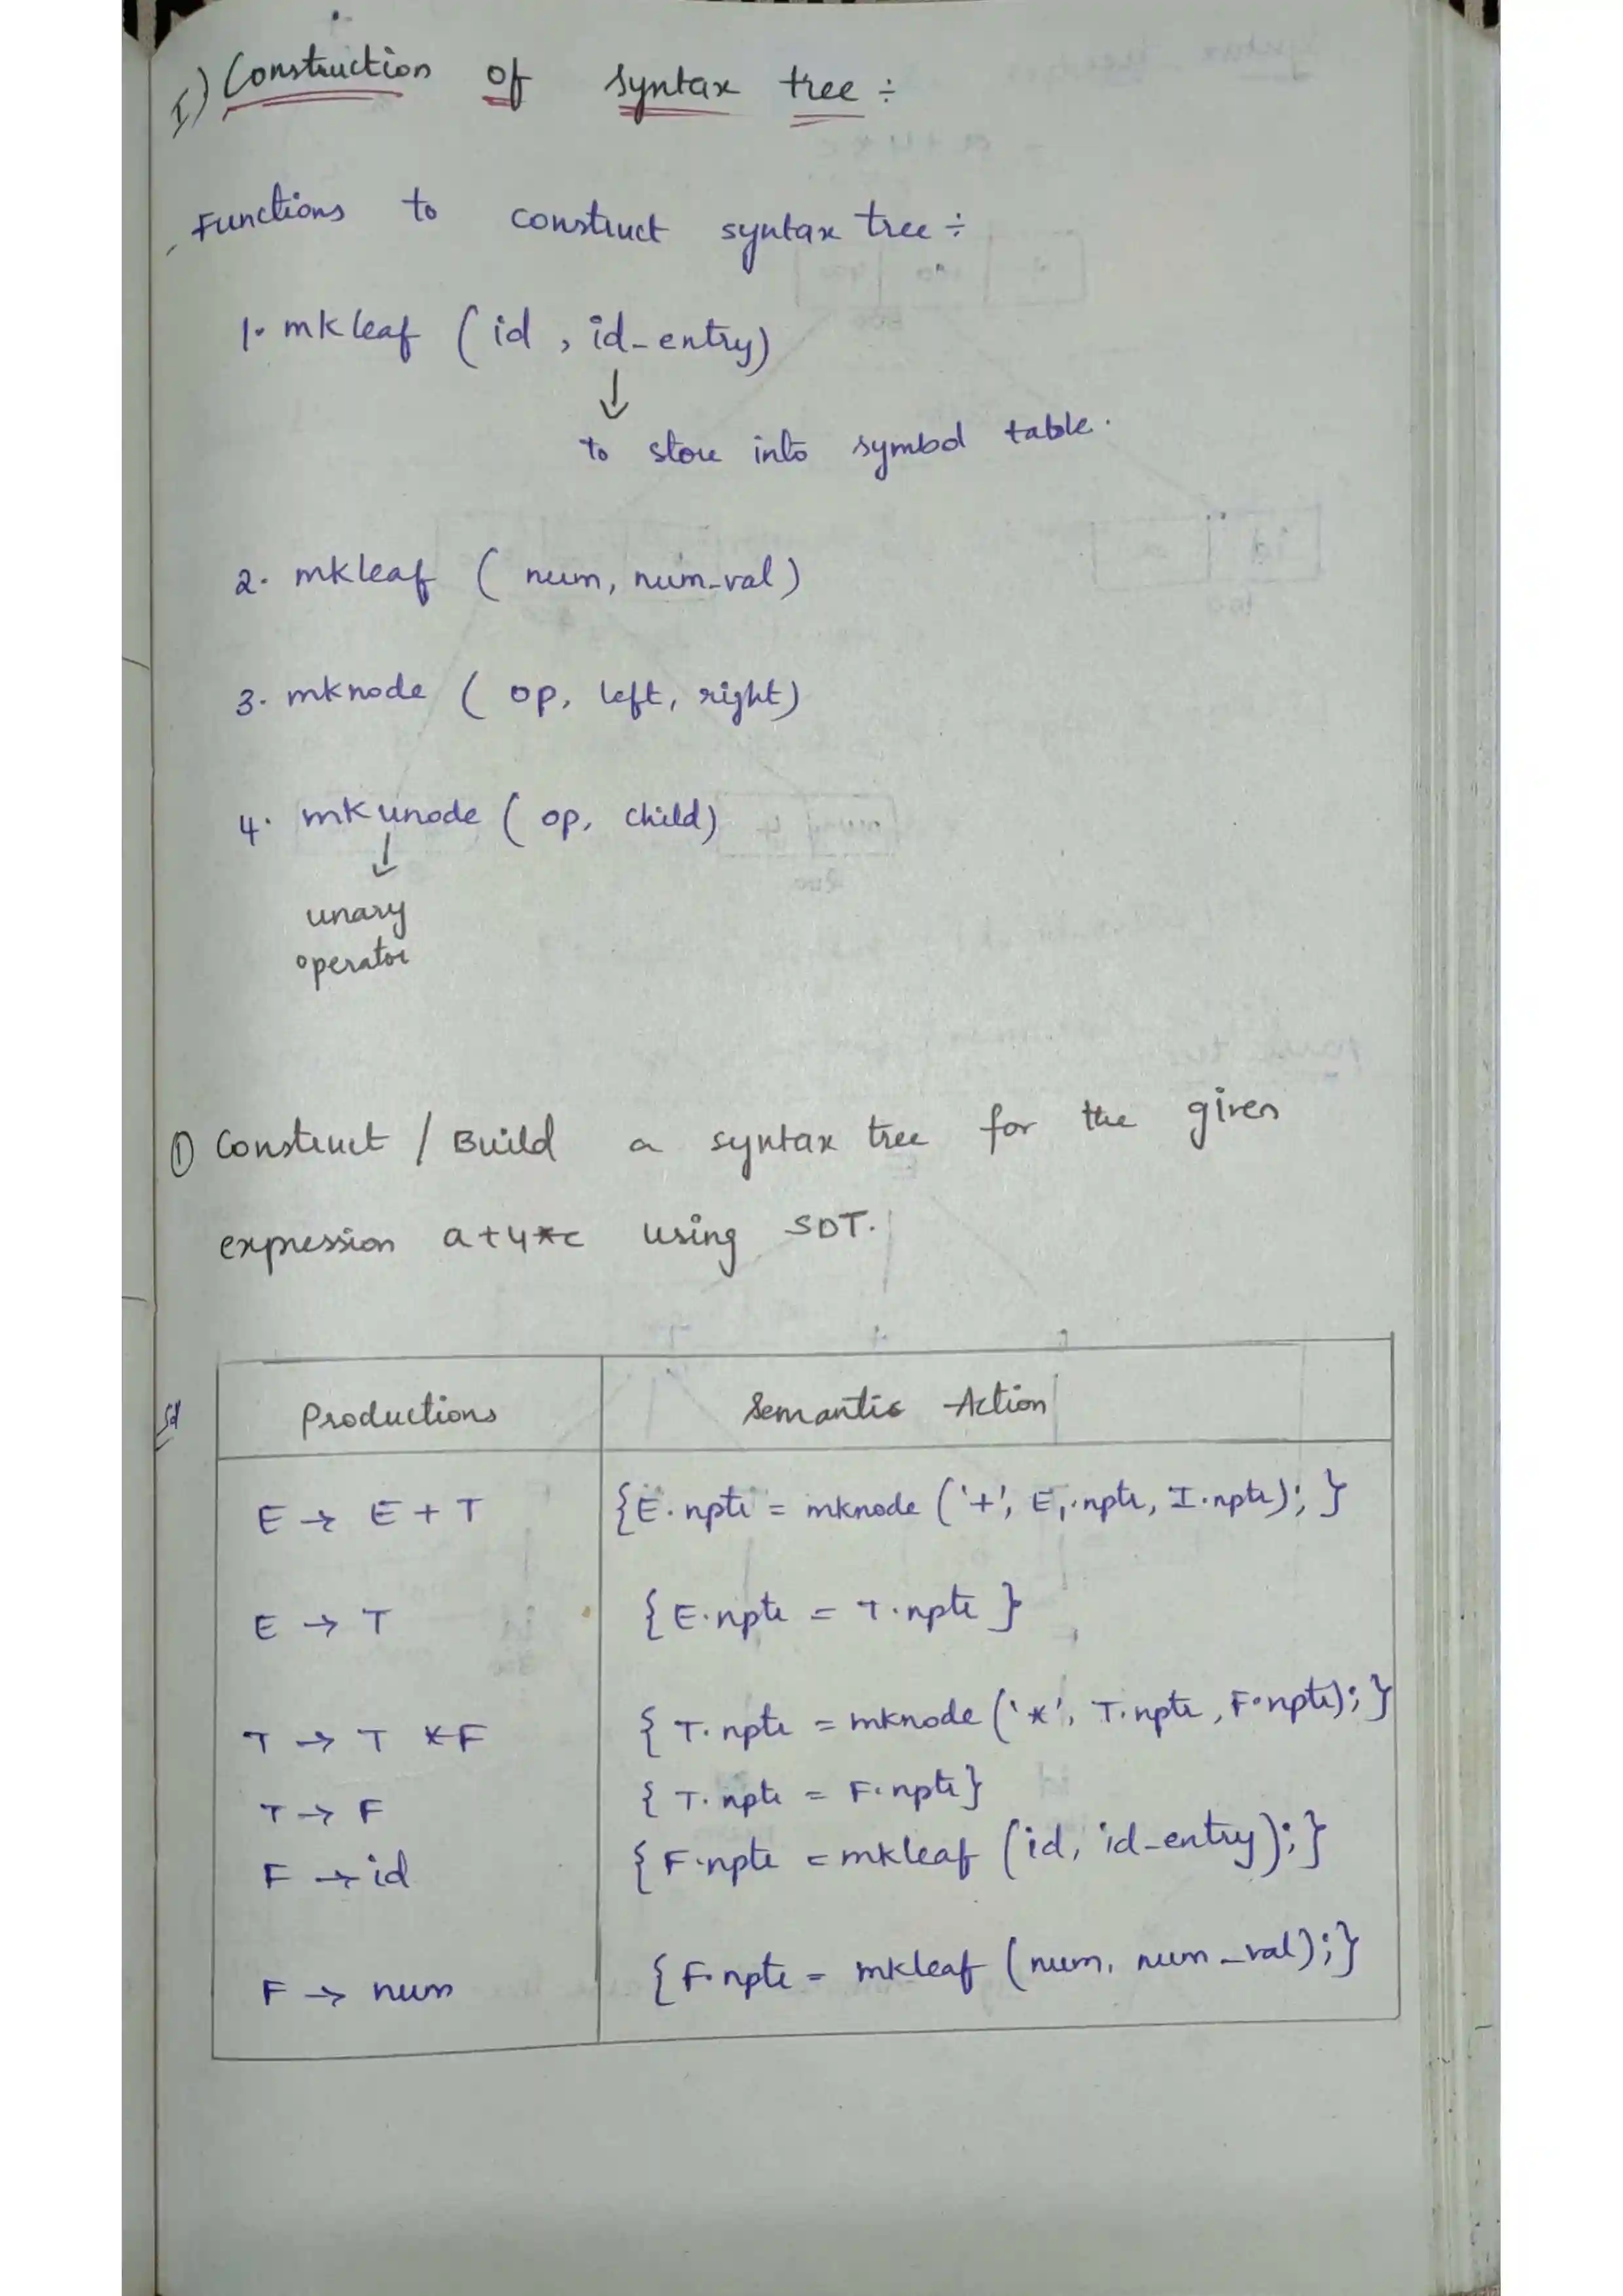 I) Construction of syntax tree ÷
Functions to construct syntax tree ÷
1. mkleaf (id, id_entry)
↓
to store into symbol table.
2. mkleaf (num, num_val)
3. mknode (op, left, right)
4. mkunode (op, child)
↓
unary
operator
① Construct / Build a syntax tree for the given
expression a+4*c using SDT.
Sol
Productions Semantic Action
E → E + T {E.nptr = mknode ('+', E₁.nptr, I.nptr); }
E → T { E.nptr = T.nptr }
T → T *F { T.nptr = mknode ('*', T.nptr, F.nptr); }
T → F { T.nptr = F.nptr}
F → id { F.nptr = mkleaf (id, id_entry); }
F → num { F.nptr = mkleaf (num, num_val); }